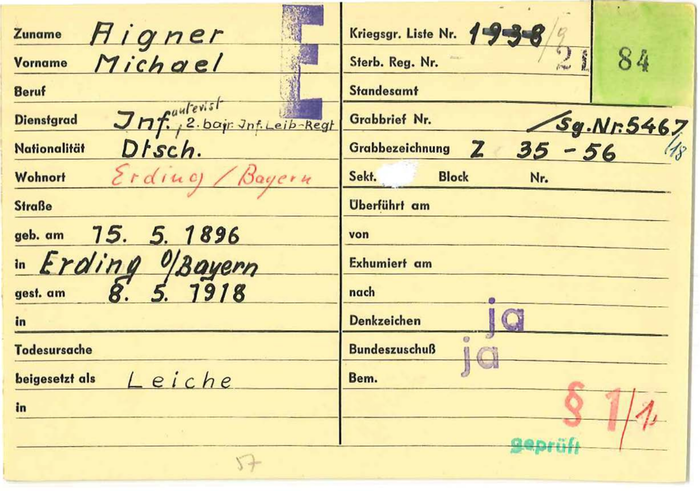 Zuname Aigner
Vorname Michael
Beruf
Dienstgrad Inf.anterist, 2. bajr. Inf. Leib-Regt
Nationalität Dtsch.
Wohnort Erding / Bayern
Straße
geb. am 15. 5. 1896
in Erding O/Bayern
gest. am 8. 5. 1918
in
Todesursache
beigesetzt als Leiche
in
57
E
Kriegsgr. Liste Nr. 1938/9
Sterb. Reg. Nr. 21 84
Standesamt
Grabbrief Nr. /Sg.Nr.5467
Grabbezeichnung Z 35-56 /18
Sekt. Block Nr.
Überführt am
von
Exhumiert am
nach
Denkzeichen ja
Bundeszuschuß ja
Bem.
§ 1/1
geprüft